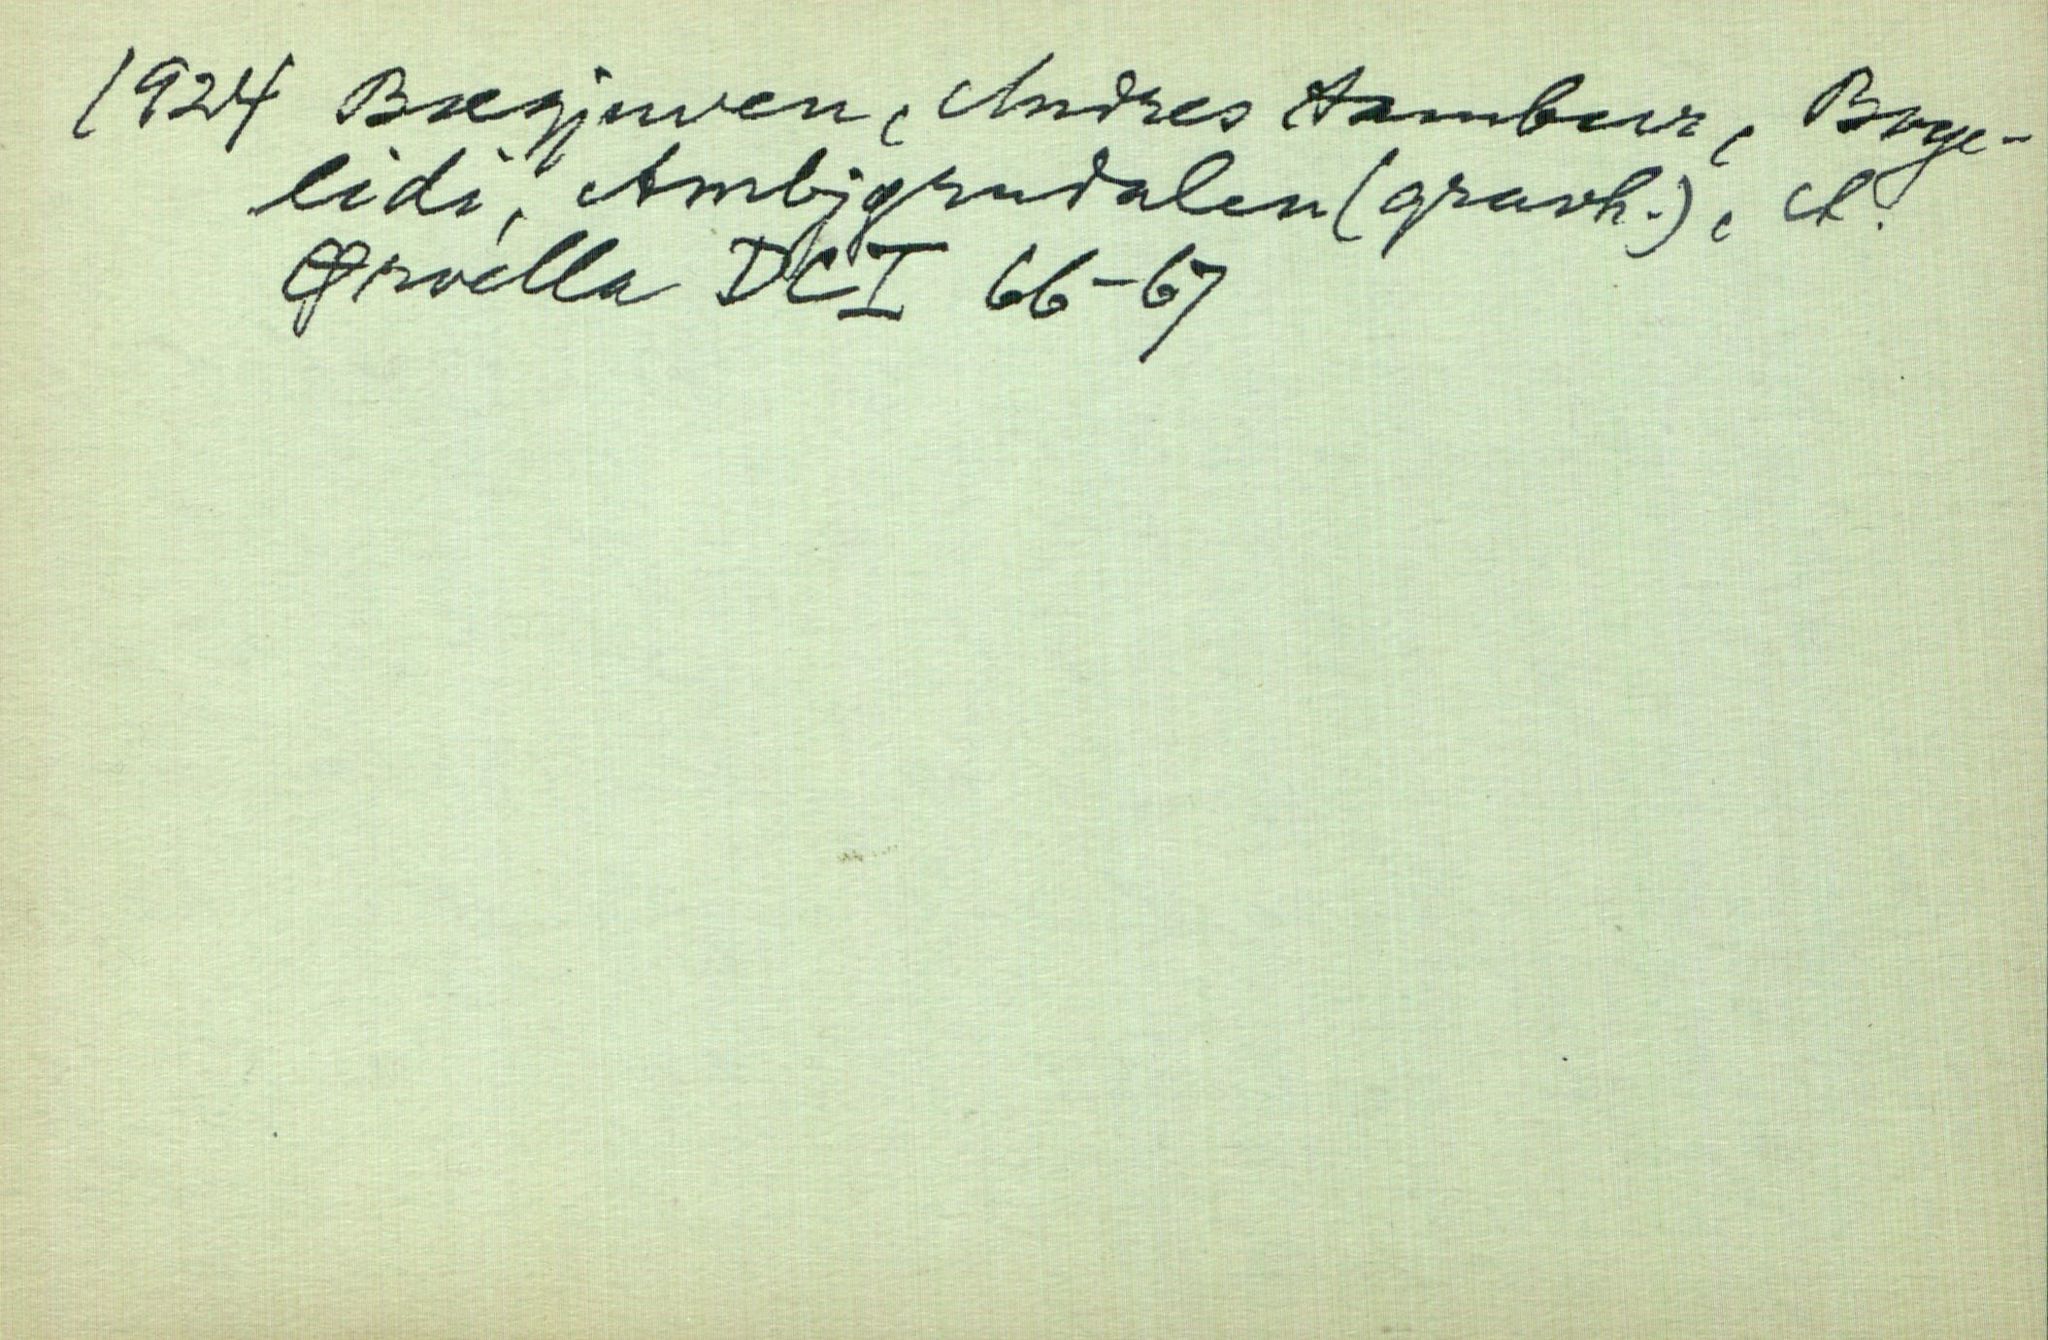 1924 Bægjuven, Andres Hambur, Bøye-
lidi, Ambjgrudalen (gravh.), A.
Ørvella DCI 66-67